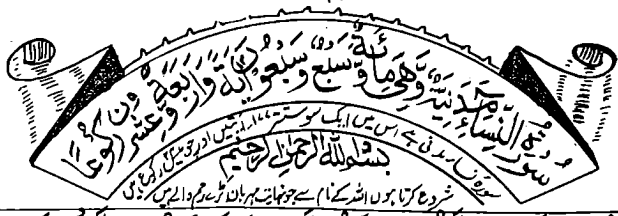 سُوْرَةُ النِّسَاءِ مَدَنِيَّةٌ وَّهِیَ مِائَةٌ وَّسَبْعٌ وَّسَبْعُوْنَ اٰيَةً وَّاَرْبَعَةٌ وَّعِشْرُوْنَ رُكُوْعًا
سورۂ نساء مدنی ہے اس میں ایک سو ستتر ۱۷۷ آیتیں اور چوبیس رکوع ہیں
بِسْمِ اللّٰهِ الرَّحْمٰنِ الرَّحِيْمِ
شروع کرتا ہوں اللہ کے نام سے جو نہایت مہربان بڑے رحم والے ہیں